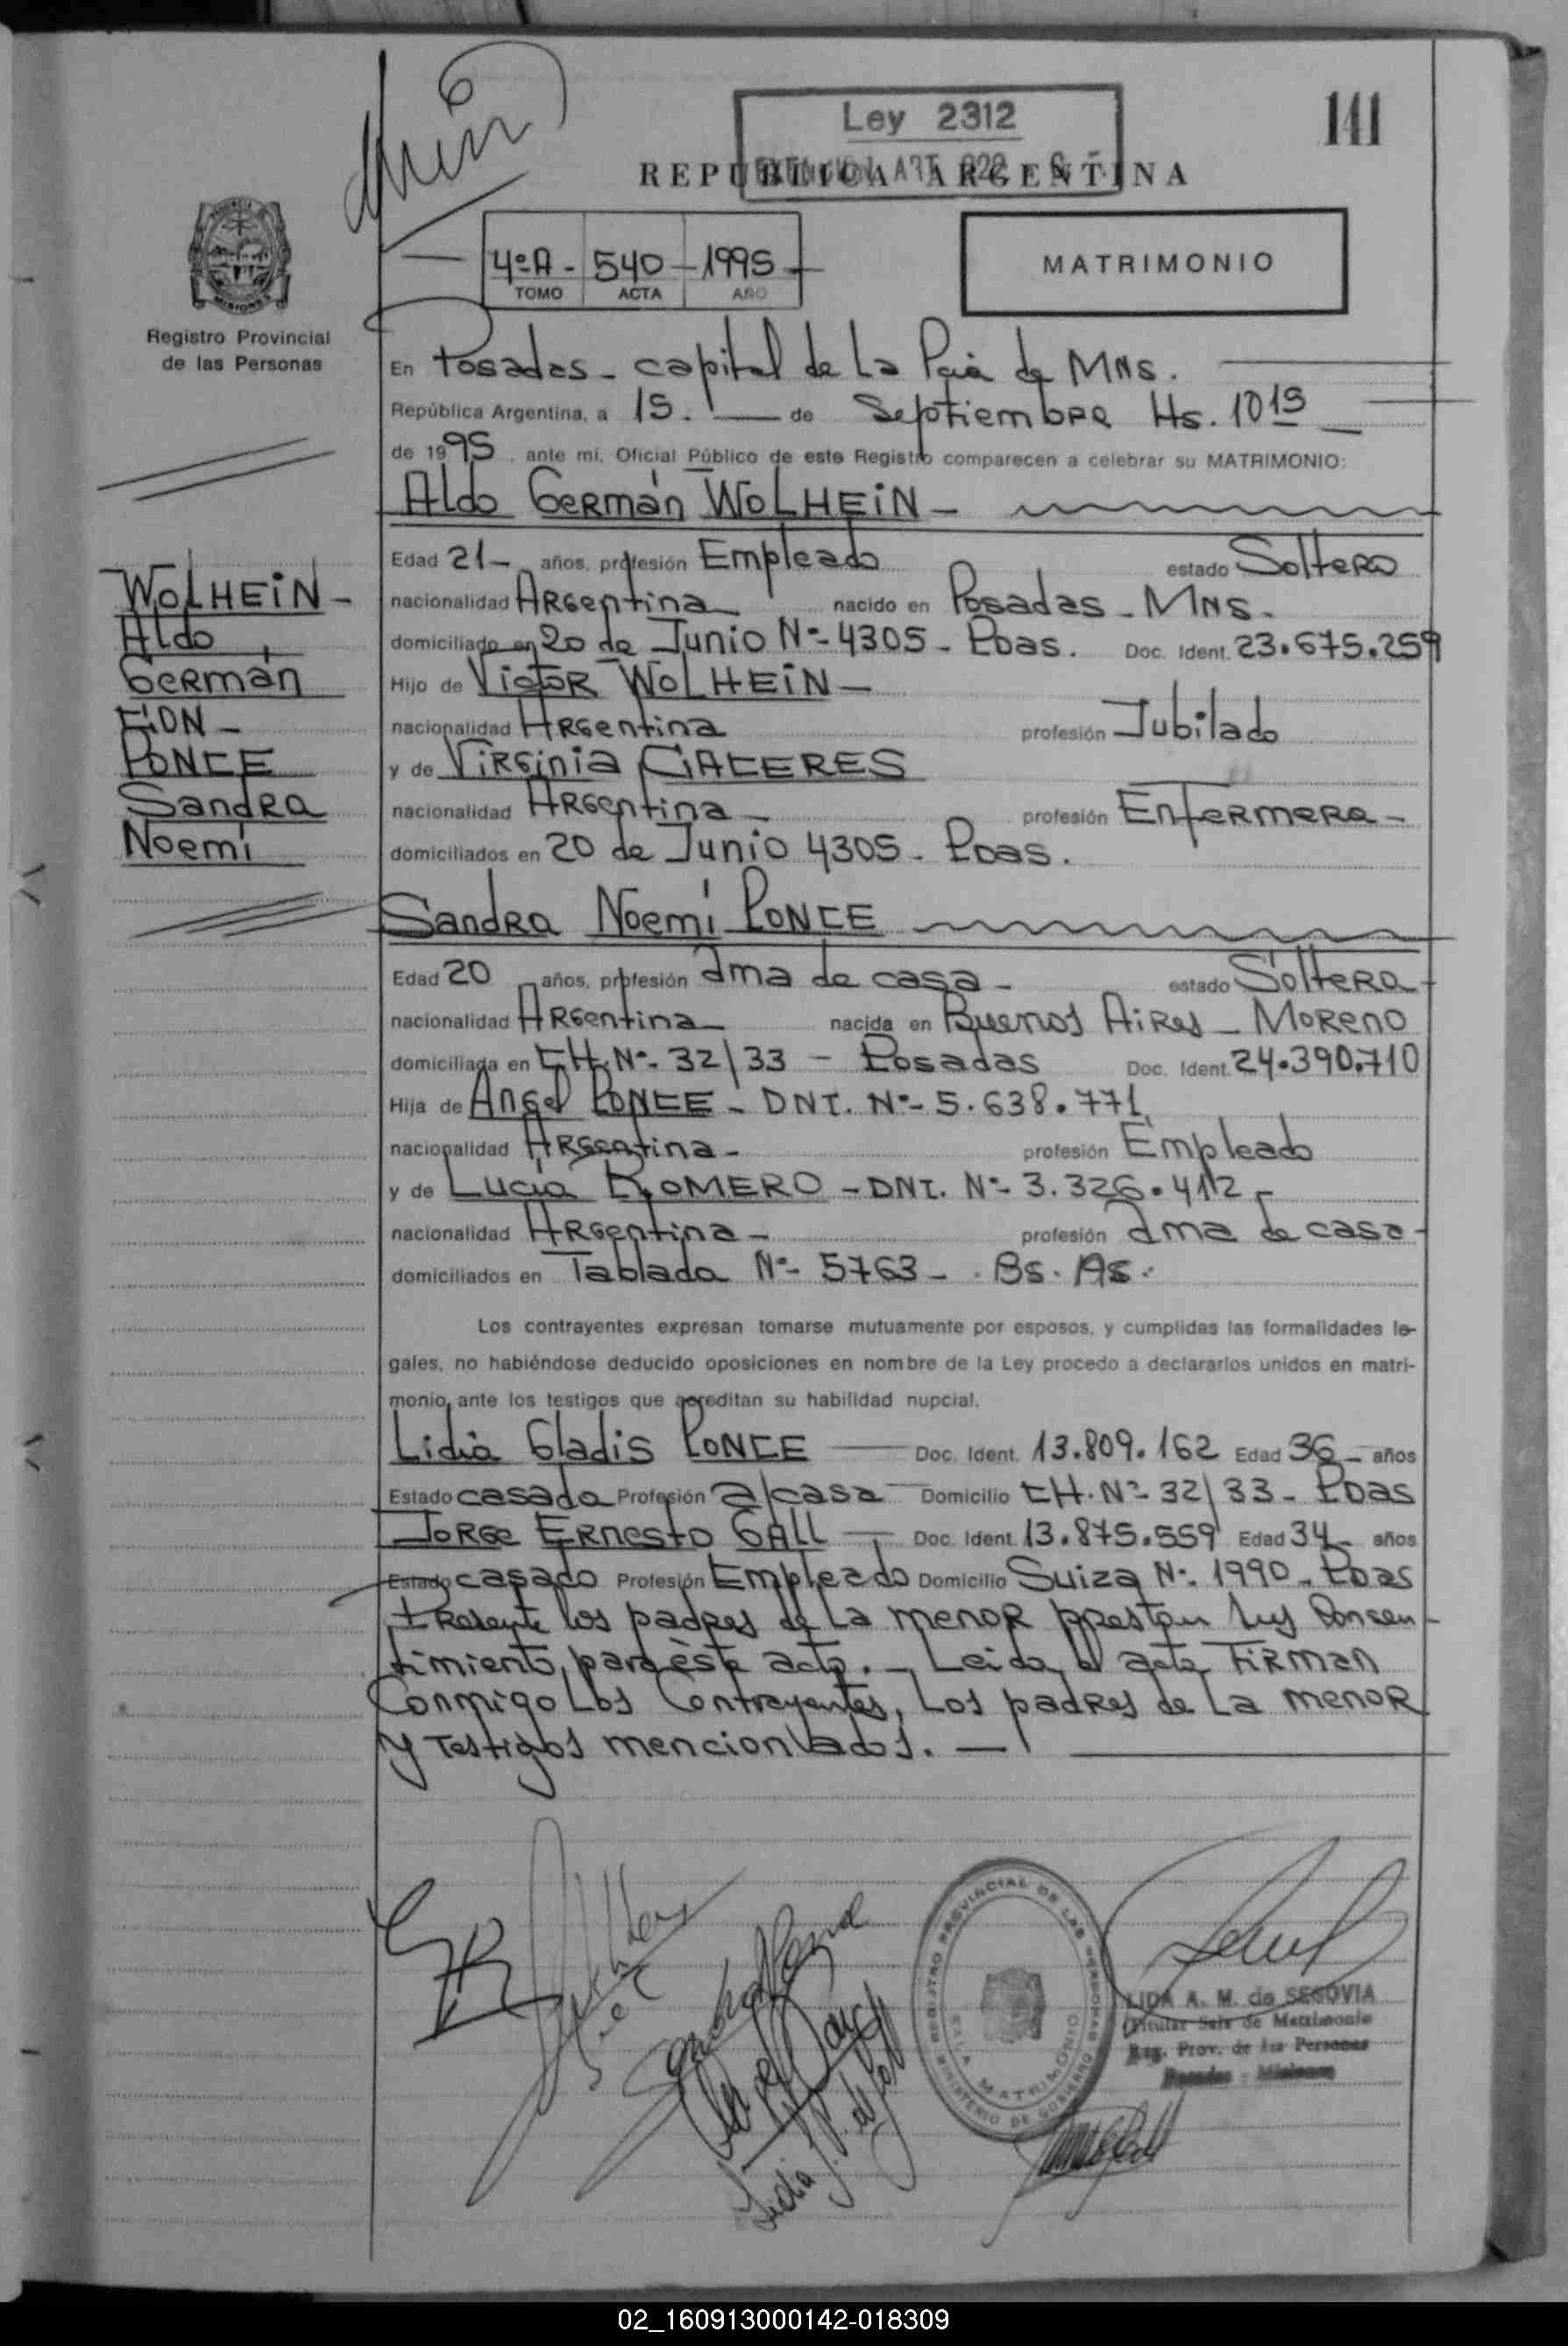 141
Ley 2312
REPUBLICA ARGENTINA
4º A - 540 - 1995
TOMO ACTA AÑO
MATRIMONIO
MISIONES
Registro Provincial
de las Personas
En Posadas - capital de La Pcia de MNS.
República Argentina, a 15. — de Septiembre Hs. 10 15
de 1995, ante mí, Oficial Público de este Registro comparecen a celebrar su MATRIMONIO:
Aldo Germán WOLHEIN -
Edad 21 - años, profesión Empleado estado Soltero
nacionalidad Argentina nacido en Posadas - MNS.
domiciliado en 20 de Junio Nº- 4305 - Pdas. Doc. Ident. 23.675.259
Hijo de Victor WOLHEIN -
nacionalidad Argentina profesión Jubilado
y de Virginia CACERES
nacionalidad Argentina - profesión Enfermera -
domiciliados en 20 de Junio 4305 - Pdas.
WOLHEIN -
Aldo
Germán
CON -
PONCE
Sandra
Noemí
Sandra Noemí PONCE
Edad 20 años, profesión ama de casa - estado Soltera -
nacionalidad Argentina - nacida en Buenos Aires - Moreno
domiciliada en CH. Nº- 32/33 - Posadas Doc. Ident. 24.390.710
Hija de Angel PONCE - DNI. Nº- 5.638.771
nacionalidad Argentina - profesión Empleado
y de Lucia ROMERO - DNI. Nº- 3.326.412 -
nacionalidad Argentina - profesión ama de casa -
domiciliados en Tablada Nº- 5763 - Bs. As.
Los contrayentes expresan tomarse mutuamente por esposos, y cumplidas las formalidades le-
gales, no habiéndose deducido oposiciones en nombre de la Ley procedo a declararlos unidos en matri-
monio, ante los testigos que acreditan su habilidad nupcial.
Lidia Gladis PONCE — Doc. Ident. 13.809.162 Edad 36 - años
Estado casada Profesión a/casa Domicilio CH. Nº- 32/33 - Pdas
Jorge Ernesto GALL — Doc. Ident. 13.875.559 Edad 34 - años
Estado casado Profesión Empleado Domicilio Suiza Nº. 1990 - Pdas
Presente los padres de la menor prestan sus Consen-
timiento, para éste acto. - Leida el acta, Firman
Conmigo Los Contrayentes, Los padres de La menor
y Testigos mencionados. —
REGISTRO PROVINCIAL DE LAS PERSONAS
SALA MATRIMONIO
MINISTERIO DE GOBIERNO
LIDA A. M. de SEGOVIA
Titular Sala de Matrimonio
Reg. Prov. de las Personas
Posadas - Misiones
02_160913000142-018309